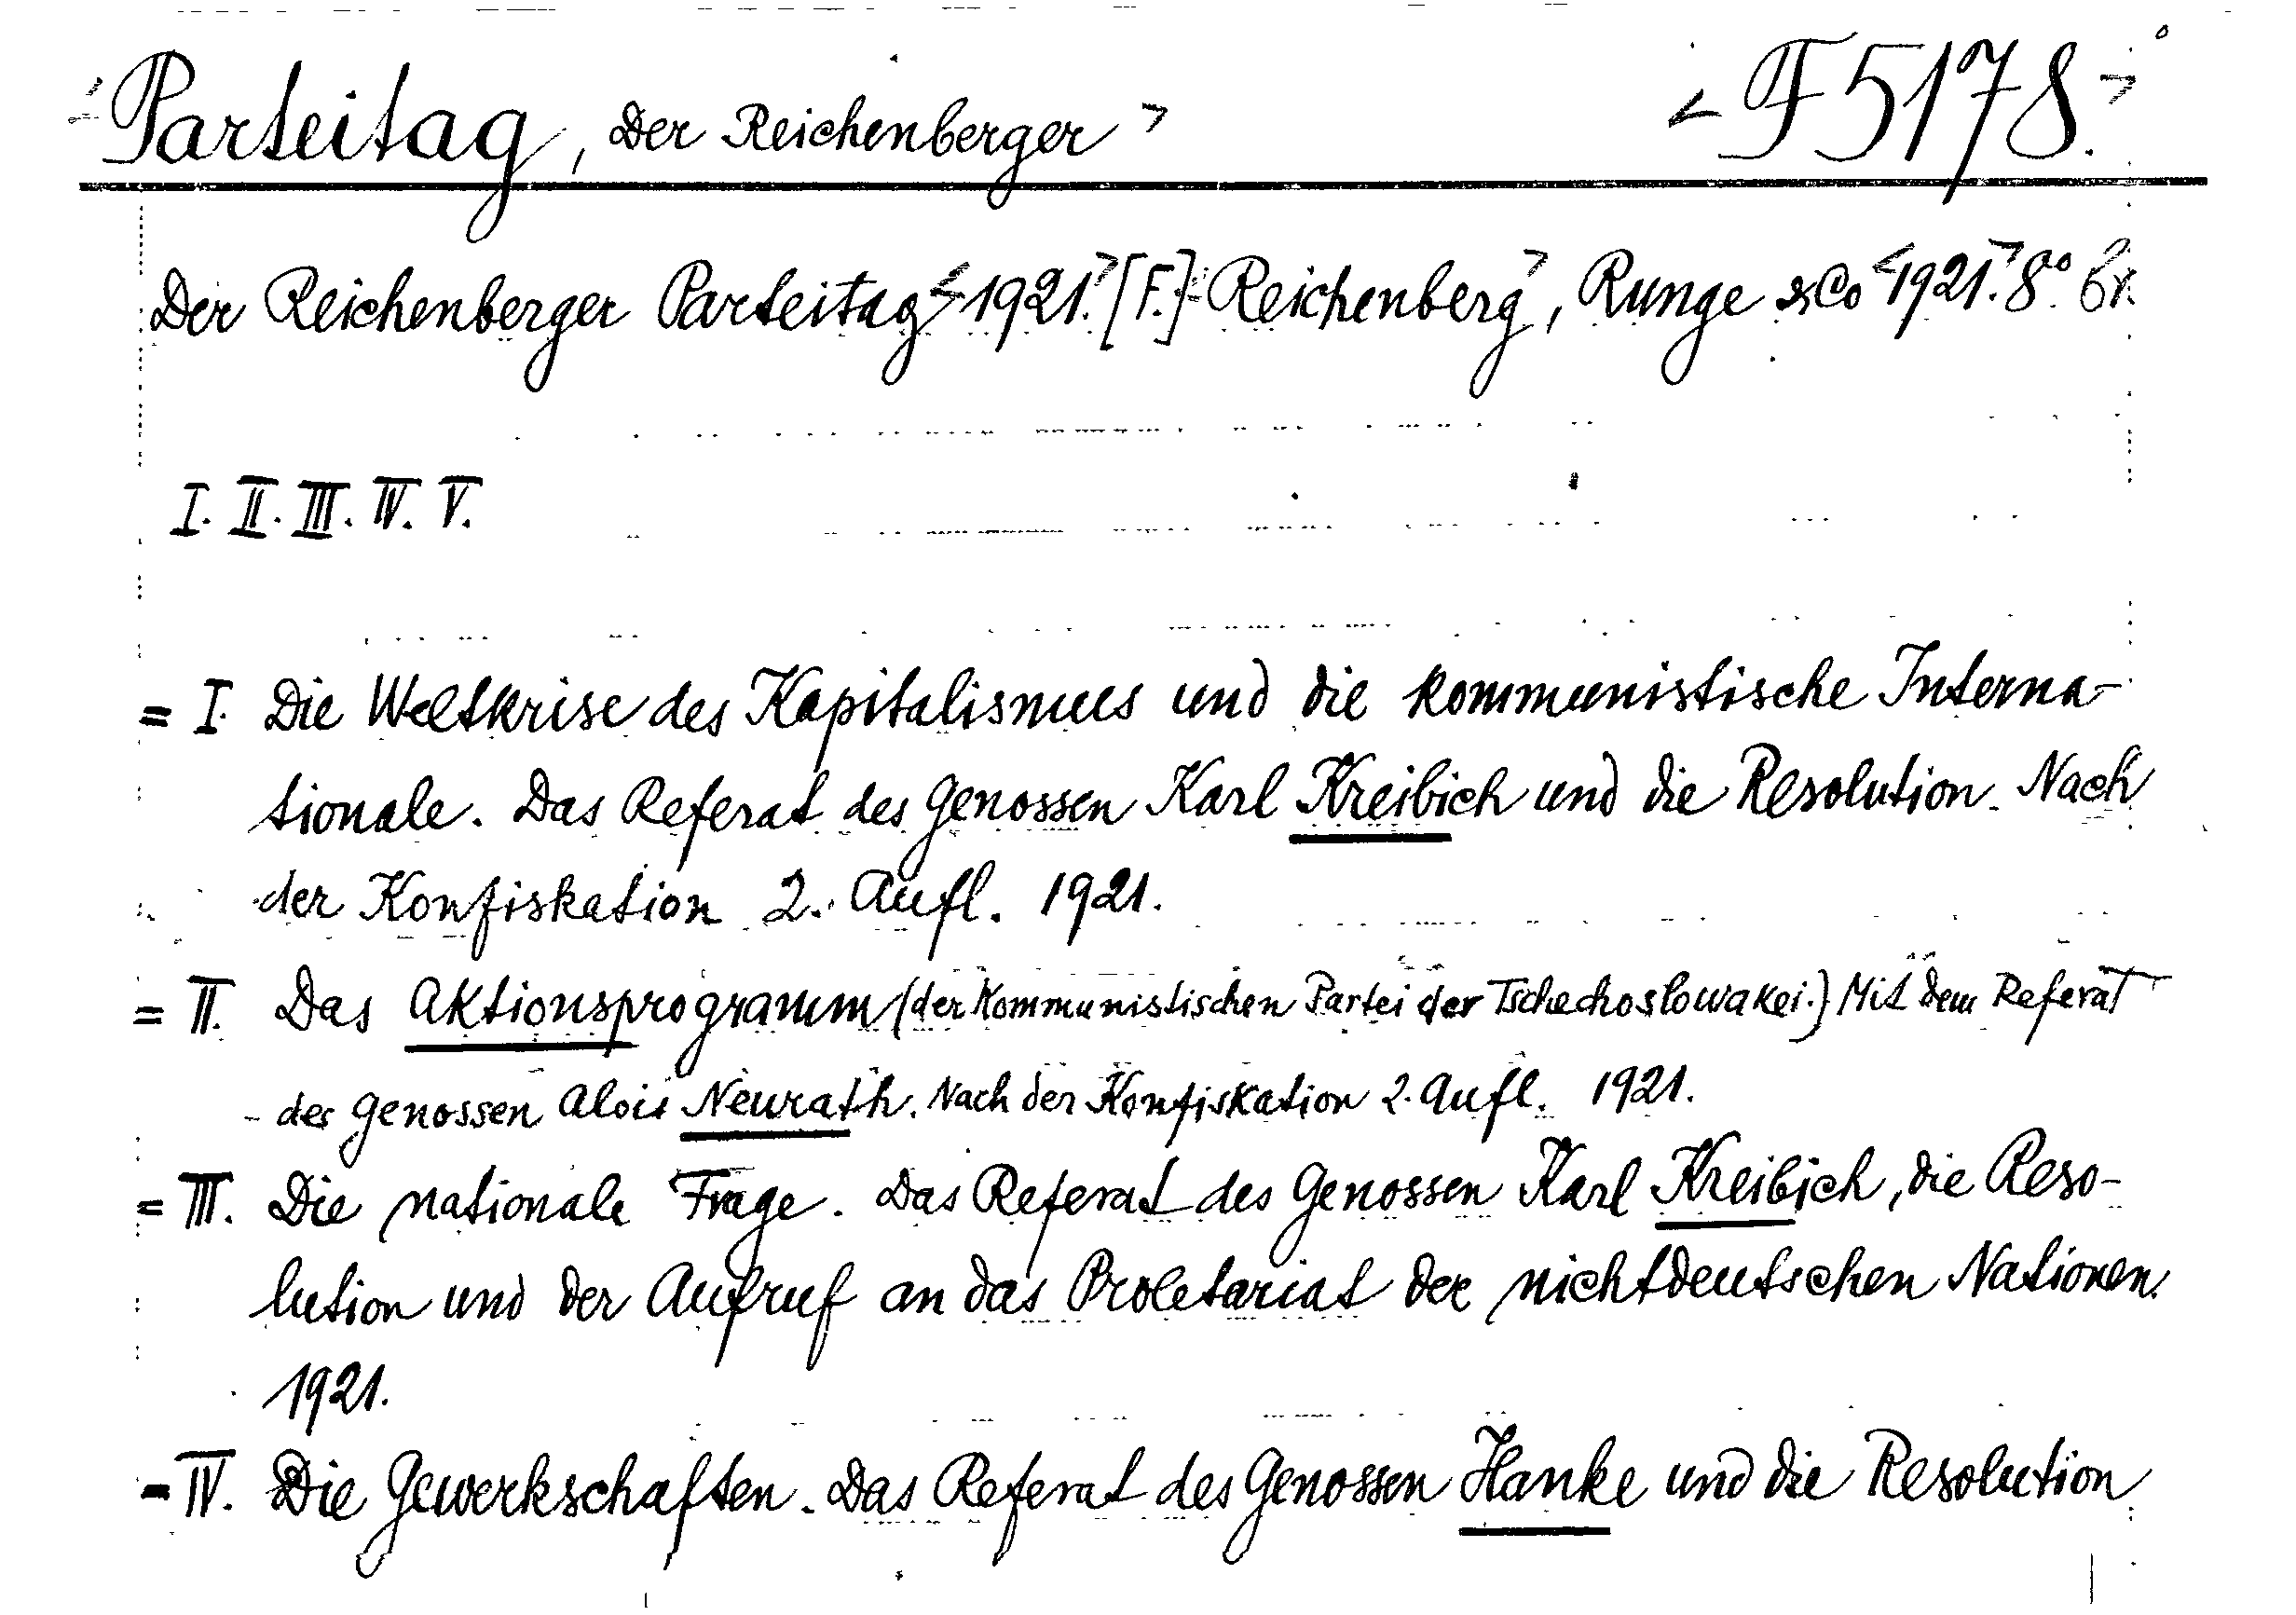 Parteitag, Der Reichenberger> <F5178.>
Der Reichenberger Parteitag <1921.> [F.] Reichenberg>, Runge & Co <1921.> 8° br.
I. II. III. IV. V.
= I. Die Weltkrise des Kapitalismus und die kommunistische Interna-
tionale. Das Referat des Genossen Karl Kreibich und die Resolution. Nach
der Konfiskation 2. Aufl. 1921.
= II. Das Aktionsprogramm (der Kommunistischen Partei der Tschechoslowakei.) Mit dem Referat
des Genossen Alois Neurath. Nach der Konfiskation 2. Aufl. 1921.
= III. Die nationale Frage. Das Referat des Genossen Karl Kreibich, die Reso-
lution und der Aufruf an das Proletariat der nichtdeutschen Nationen.
1921.
= IV. Die Gewerkschaften. Das Referat des Genossen Hanke und die Resolution